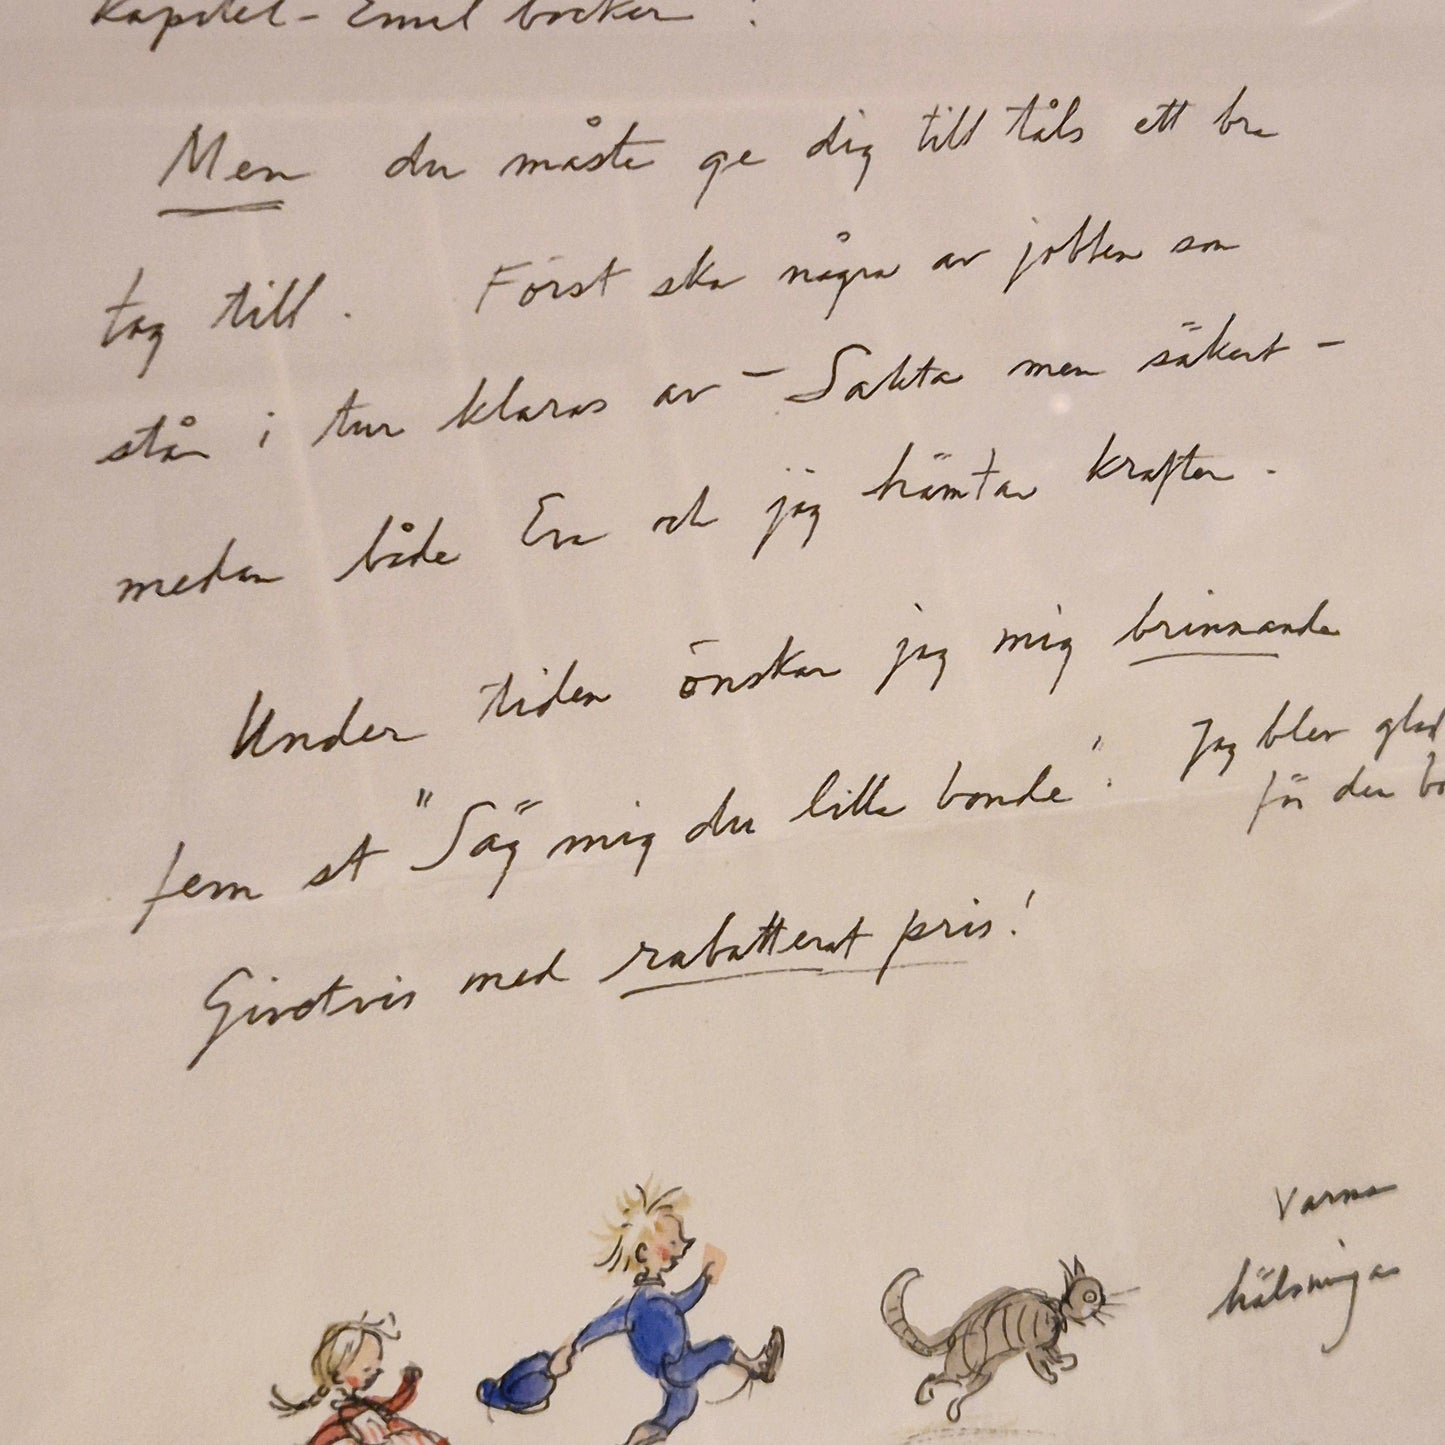 Kapitel - Emil böcker !
Men du måste ge dig till tåls ett bra
tag till. Först ska några av jobben som
står i tur klaras av - Sakta men säkert -
medan både Eva och jag hämtar krafter.
Under tiden önskar jag mig brinnande
fem st "Säg mig du lilla bonde". Jag blev glad
för den
Givetvis med rabatterat pris!
Varma
hälsningar